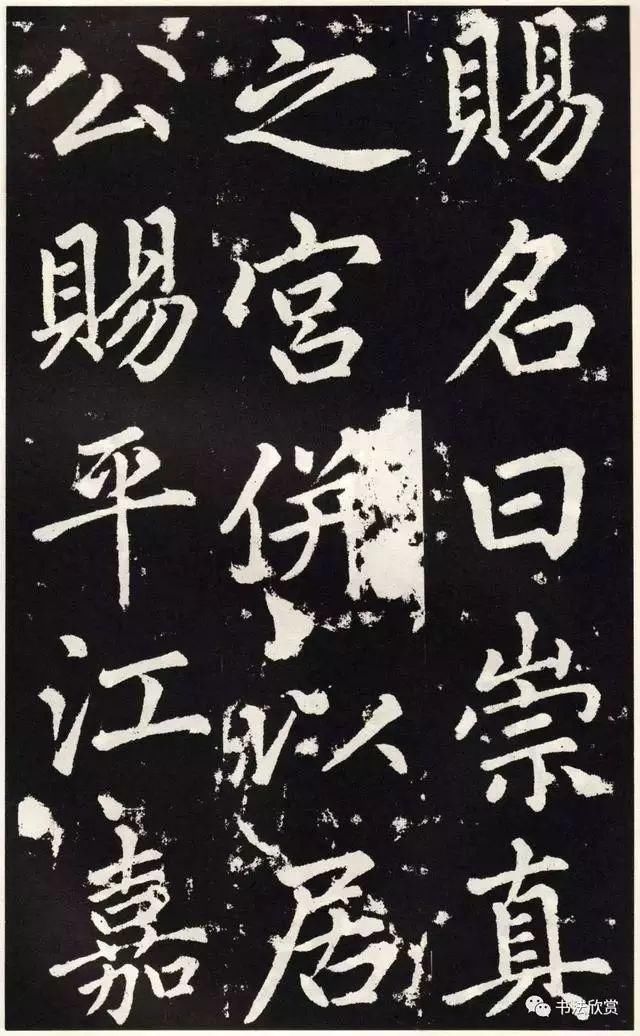 賜名曰崇真
之宮併以居
公賜平江嘉
书法欣赏